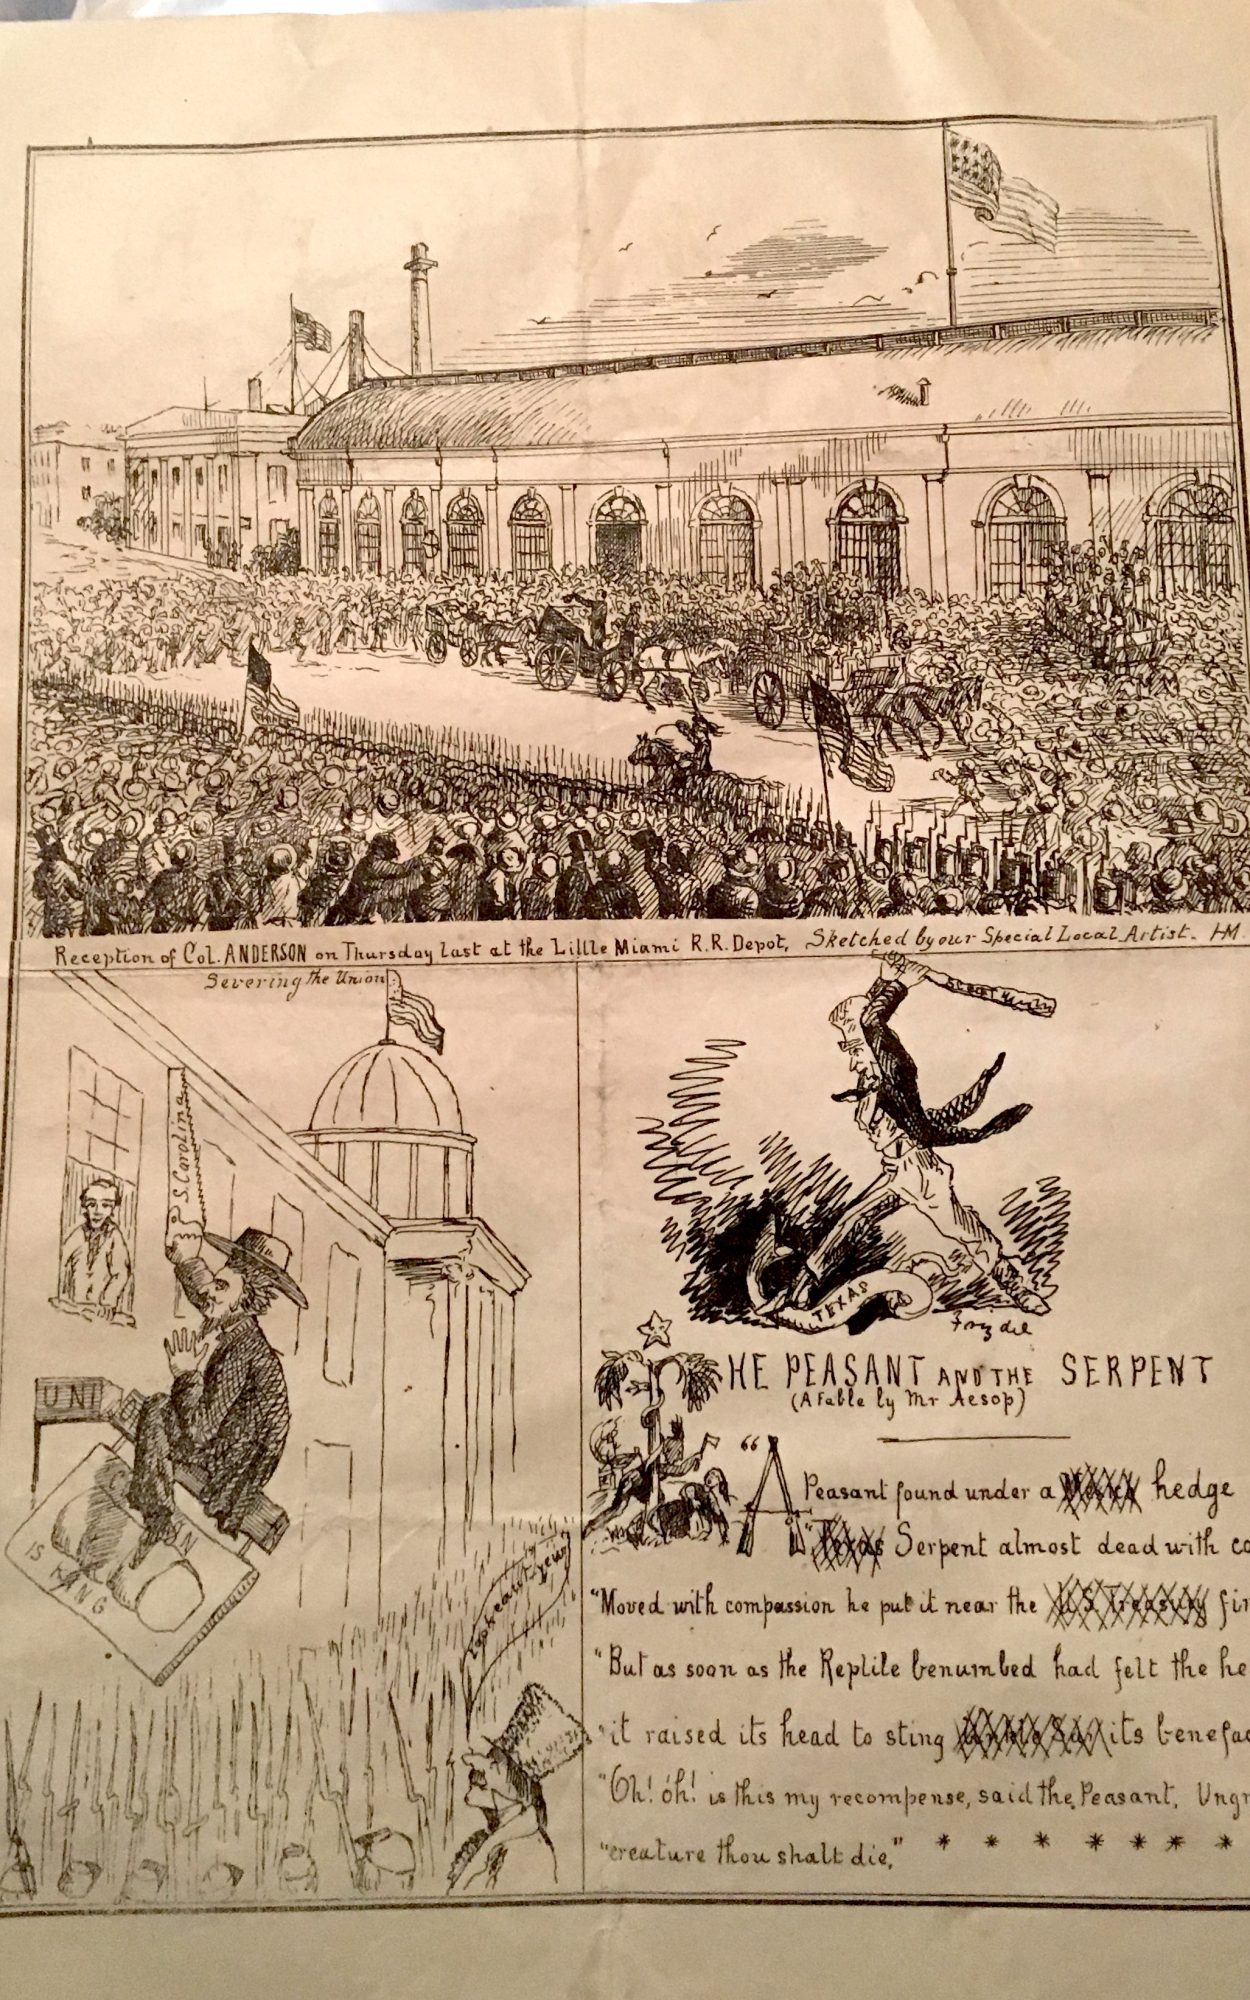 Reception of Col. ANDERSON on Thursday last at the Little Miami R.R. Depot, Sketched by our Special Local Artist. HM.
Severing the Union
S. Carolina
UNI
IS KANG
look out
TEXAS
HE PEASANT AND THE SERPENT
(A fable by Mr Aesop)
"A Peasant found under a hedge
"Texas Serpent almost dead with co
"Moved with compassion he put it near the U.S Treasury fir
"But as soon as the Reptile benumbed had felt the he
"it raised its head to sting Uncle Sam its benefac
"Oh! oh! is this my recompense, said the Peasant, Ungr
"creature thou shalt die," * * * * * * *